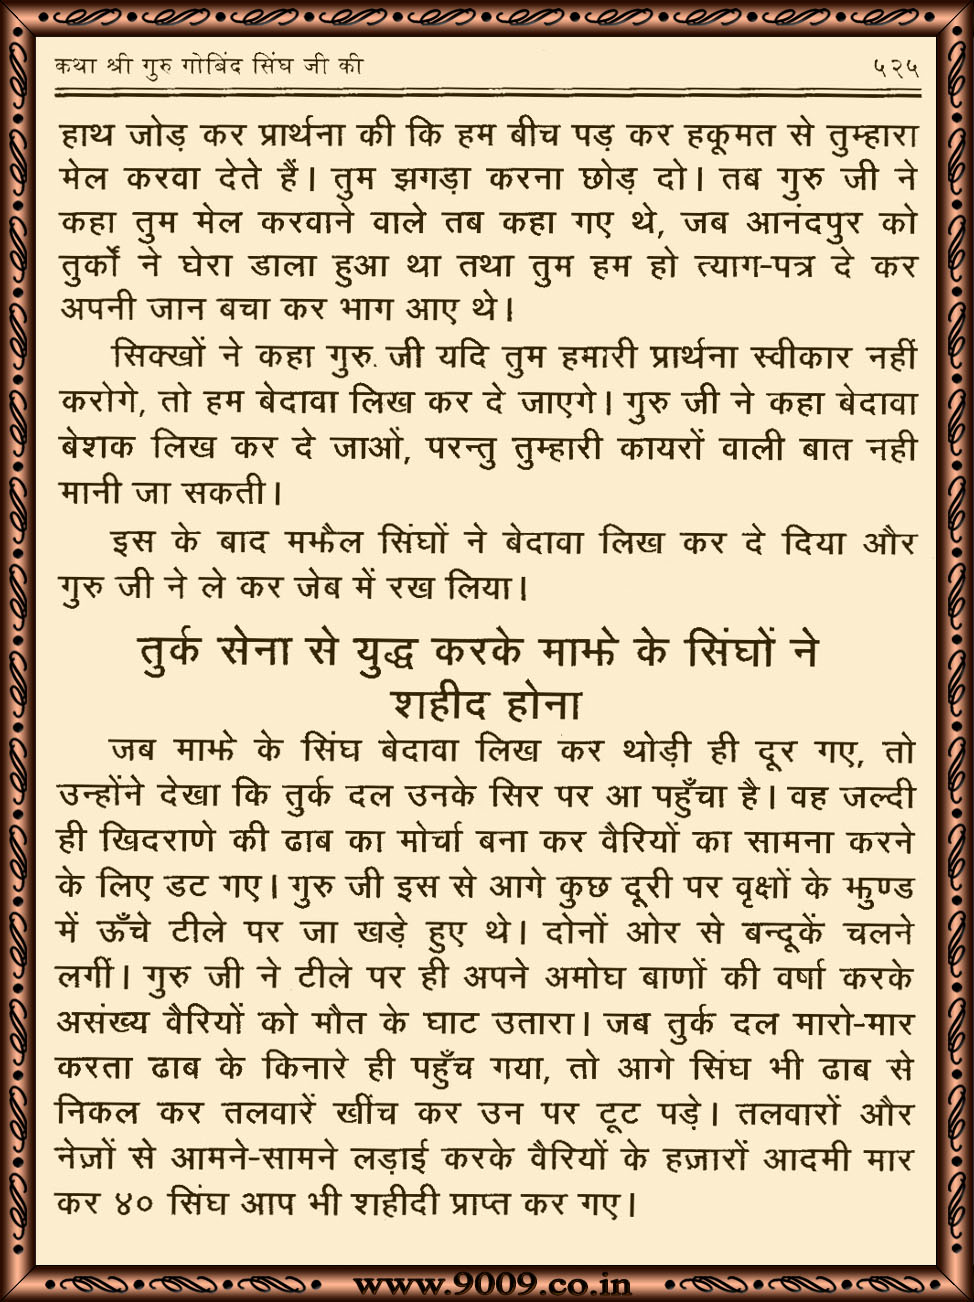 कथा श्री गुरु गोबिंद सिंघ जी की ५२५
हाथ जोड़ कर प्रार्थना की कि हम बीच पड़ कर हकूमत से तुम्हारा
मेल करवा देते हैं। तुम झगड़ा करना छोड़ दो। तब गुरु जी ने
कहा तुम मेल करवाने वाले तब कहा गए थे, जब आनंदपुर को
तुर्कों ने घेरा डाला हुआ था तथा तुम हम हो त्याग-पत्र दे कर
अपनी जान बचा कर भाग आए थे।
सिक्खों ने कहा गुरु जी यदि तुम हमारी प्रार्थना स्वीकार नहीं
करोगे, तो हम बेदावा लिख कर दे जाएगे। गुरु जी ने कहा बेदावा
बेशक लिख कर दे जाओं, परन्तु तुम्हारी कायरों वाली बात नही
मानी जा सकती।
इस के बाद मझैल सिंघों ने बेदावा लिख कर दे दिया और
गुरु जी ने ले कर जेब में रख लिया।
तुर्क सेना से युद्ध करके माझे के सिंघों ने
शहीद होना
जब माझे के सिंघ बेदावा लिख कर थोड़ी ही दूर गए, तो
उन्होंने देखा कि तुर्क दल उनके सिर पर आ पहुँचा है। वह जल्दी
ही खिदराणे की ढाब का मोर्चा बना कर वैरियों का सामना करने
के लिए डट गए। गुरु जी इस से आगे कुछ दूरी पर वृक्षों के झुण्ड
में ऊँचे टीले पर जा खड़े हुए थे। दोनों ओर से बन्दूकें चलने
लगीं। गुरु जी ने टीले पर ही अपने अमोघ बाणों की वर्षा करके
असंख्य वैरियों को मौत के घाट उतारा। जब तुर्क दल मारो-मार
करता ढाब के किनारे ही पहुँच गया, तो आगे सिंघ भी ढाब से
निकल कर तलवारें खींच कर उन पर टूट पड़े। तलवारों और
नेज़ों से आमने-सामने लड़ाई करके वैरियों के हज़ारों आदमी मार
कर ४० सिंघ आप भी शहीदी प्राप्त कर गए।
www.9009.co.in